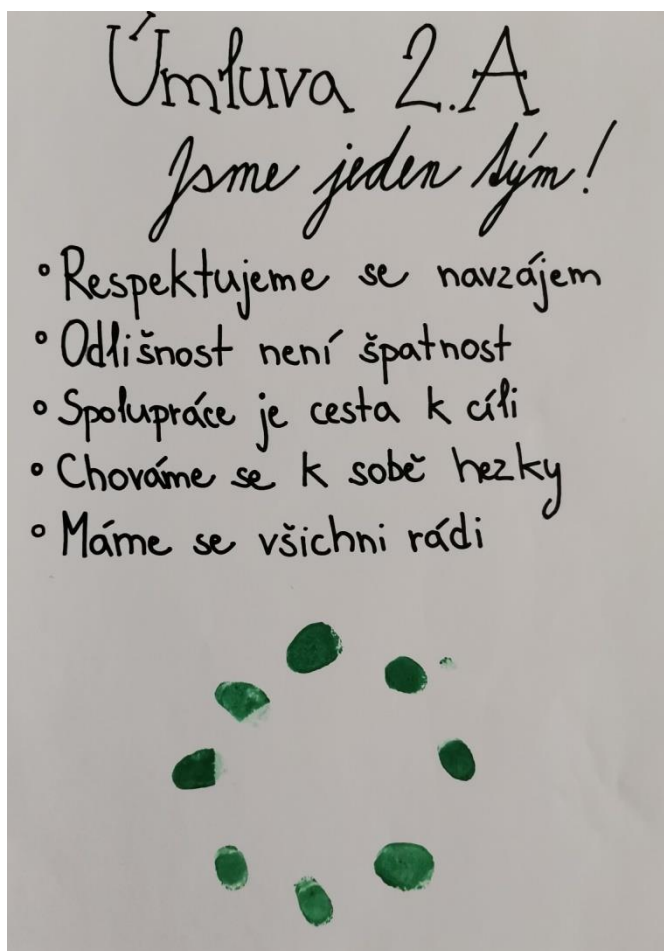 Úmluva 2.A
Jsme jeden tým!
Respektujeme se navzájem
Odlišnost není špatnost
Spolupráce je cesta k cíli
Chováme se k sobě hezky
Máme se všichni rádi